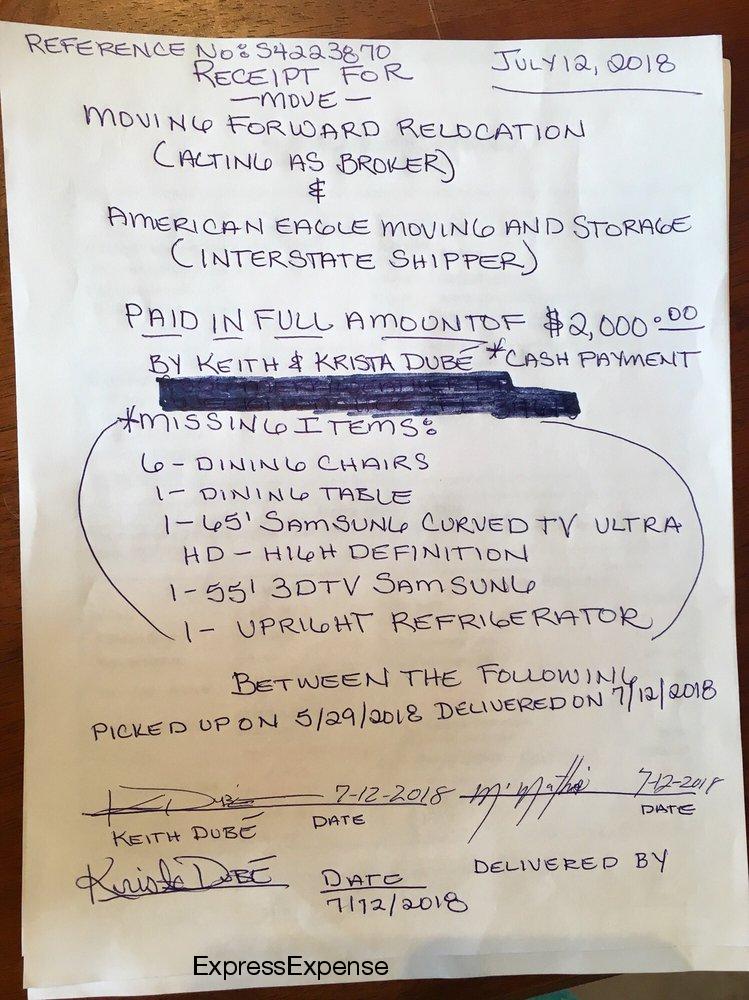 REFERENCE NO: S4223870
JULY 12, 2018
RECEIPT FOR
—MOVE—
MOVING FORWARD RELOCATION
(ACTING AS BROKER)
&
AMERICAN EAGLE MOVING AND STORAGE
(INTERSTATE SHIPPER)
PAID IN FULL AMOUNT OF $2,000.00
BY KEITH & KRISTA DUBÉ *CASH PAYMENT
*MISSING ITEMS:
6- DINING CHAIRS
1- DINING TABLE
1-65' SAMSUNG CURVED TV ULTRA
HD - HIGH DEFINITION
1-55' 3DTV SAMSUNG
1- UPRIGHT REFRIGERATOR
BETWEEN THE FOLLOWING
PICKED UP ON 5/29/2018 DELIVERED ON 7/12/2018
7-12-2018
7-12-2018
KEITH DUBÉ DATE
DATE
Krista DUBÉ DATE
DELIVERED BY
7/12/2018
ExpressExpense